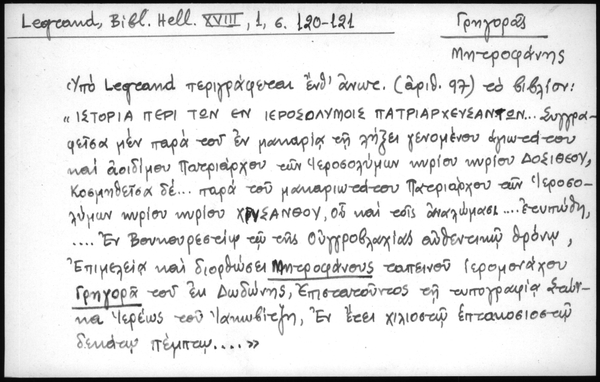 Legrand, Bibl. Hell. XVIII, 1, σ. 120-121
Γρηγορᾶς
Μητροφάνης
Ὑπό Legrand περιγράφεται ἔνθ' ἀνωτ. (ἀριθ. 97) τό βιβλίον:
« ΙΣΤΟΡΙΑ ΠΕΡΙ ΤΩΝ ΕΝ ΙΕΡΟΣΟΛΥΜΟΙΣ ΠΑΤΡΙΑΡΧΕΥΣΑΝΤΩΝ... Συγγρα-
φεῖσα μέν παρά τοῦ ἐν μακαρίᾳ τῇ λήξει γενομένου ἁγιωτάτου
καί ἀοιδίμου Πατριάρχου τῶν Ἱεροσολύμων κυρίου κυρίου ΔΟΣΙΘΕΟΥ,
Κοσμηθεῖσα δέ... παρά τοῦ μακαριωτάτου Πατριάρχου τῶν Ἱεροσο-
λύμων κυρίου κυρίου ΧΡΥΣΑΝΘΟΥ, οὗ καί τοῖς ἀναλώμασι .... ἐτυπώθη,
.... Ἐν Βουκουρεστίῳ τῷ τῆς Οὑγγροβλαχίας αὐθεντικῷ θρόνῳ,
Ἐπιμελείᾳ καί διορθώσει Μητροφάνους ταπεινοῦ ἱερομονάχου
Γρηγορᾶ τοῦ ἐκ Δωδώνης, Ἐπιστατοῦντος τῇ τυπογραφίᾳ Στόϊ-
κα Ἱερέως τοῦ Ἰακωβίτζη, Ἐν ἔτει χιλιοστῷ ἑπτακοσιοστῷ
δεκάτῳ πέμπτῳ.... »